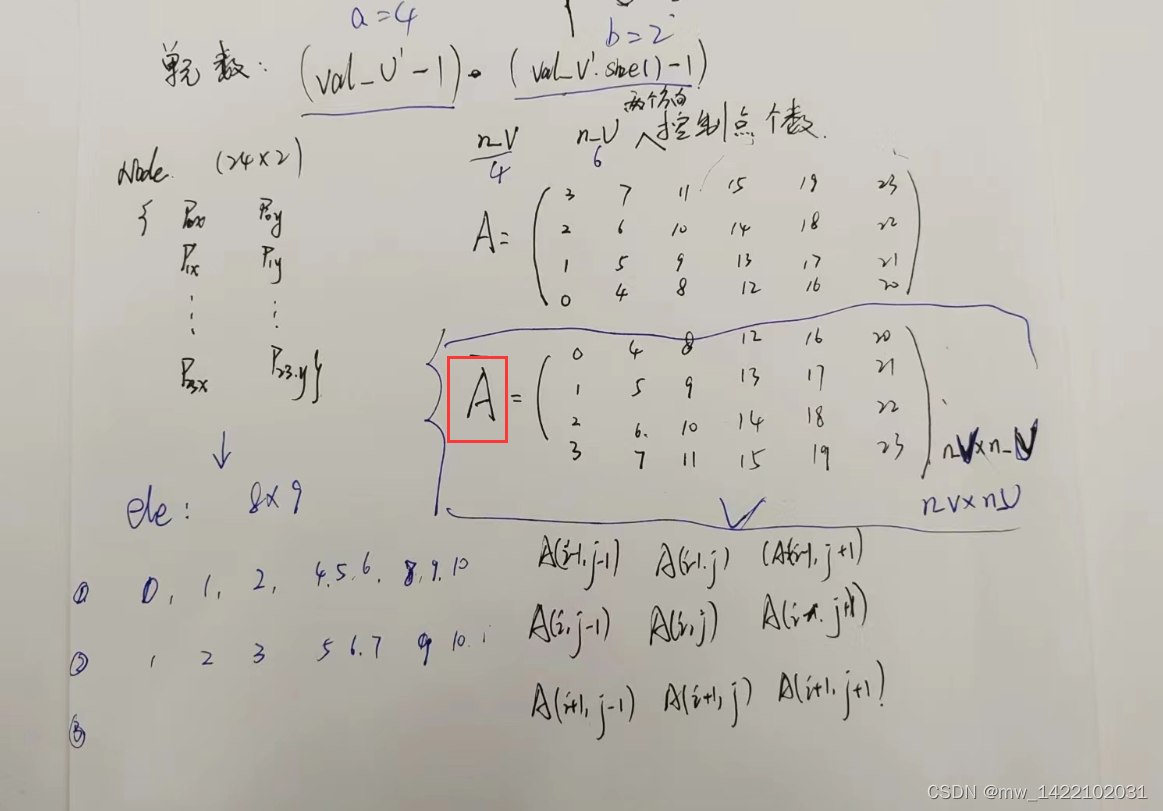 a=4
b=2
单元数: (val_U'-1)·(val_V'.size()-1)
两个方向
n_V n_U 控制点个数.
4 6
Node. (24×2)
{ P0x P0y
P1x P1y
⋮ ⋮
P23x P23.y}
A= ( 3 7 11 15 19 23
2 6 10 14 18 22
1 5 9 13 17 21
0 4 8 12 16 20 )
A = ( 0 4 8 12 16 20
1 5 9 13 17 21
2 6. 10 14 18 22
3 7 11 15 19 23 ) n_V×n_U
n_V×n_U
ele: 8×9
① 0, 1, 2, 4.5.6, 8,9,10
② 1 2 3 5 6.7 9 10.
③
A(i-1,j-1) A(i-1,j) A(i-1,j+1)
A(i,j-1) A(i,j) A(i, j+1)
A(i+1,j-1) A(i+1,j) A(i+1,j+1)
CSDN @mw_1422102031